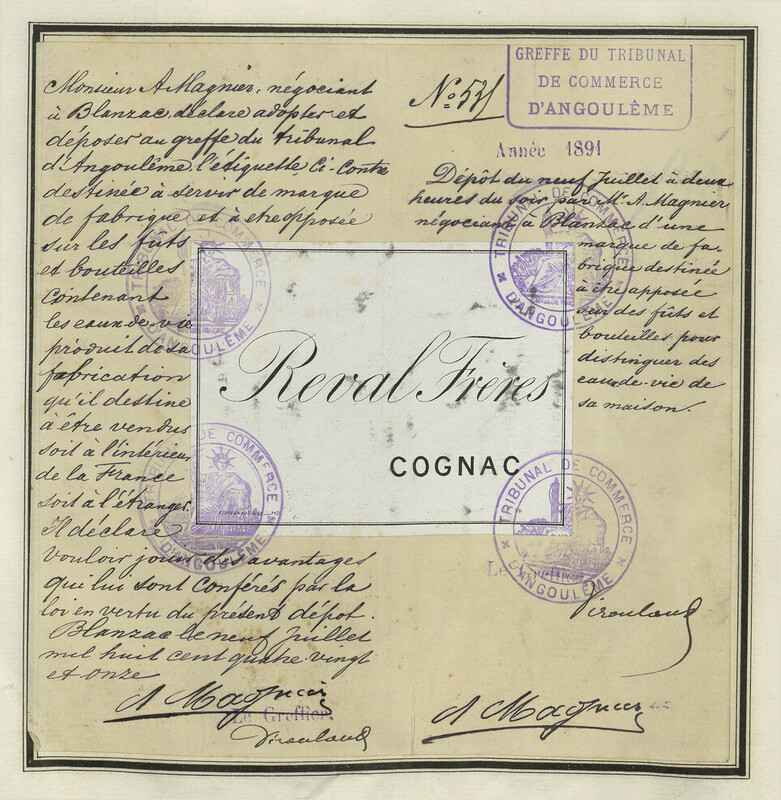 Monsieur A. Magnier, négociant
à Blanzac, déclare adopter et
déposer au greffe du tribunal
d'Angoulême, l'étiquette Ci-Contre
destinée à servir de marque
de fabrique et à etre apposée
sur les fûts
et bouteilles
Contenant
les eaux-de-vie
produit de sa
fabrication
qu'il destine
à être vendus
soit à l'intérieur
de la France
soit à l'étranger.
Il déclare
vouloir jouir des avantages
qui lui sont conférés par la
loi en vertu du présent dépot.
Blanzac le neuf juillet
mil huit cent quatre vingt
et onze
A Magnier
Le Greffier,
GREFFE DU TRIBUNAL
DE COMMERCE
D'ANGOULÊME
No 531
Année 1891
Dépôt du neuf Juillet à deux
heures du soir par Mr. A. Magnier
négociant à Blanzac d'une
marque de fa-
brique destinée
à être apposée
sur des fûts et
bouteilles pour
distinguer des
eaux-de-vie de
sa maison.
Reval Frères
COGNAC
TRIBUNAL DE COMMERCE
D'ANGOULÊME
TRIBUNAL DE COMMERCE
D'ANGOULÊME
TRIBUNAL DE COMMERCE
D'ANGOULÊME
TRIBUNAL DE COMMERCE
D'ANGOULÊME
Le Greffier
A Magnier